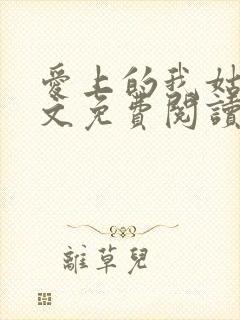 愛上的我姑
文免費閱讀
離草兒